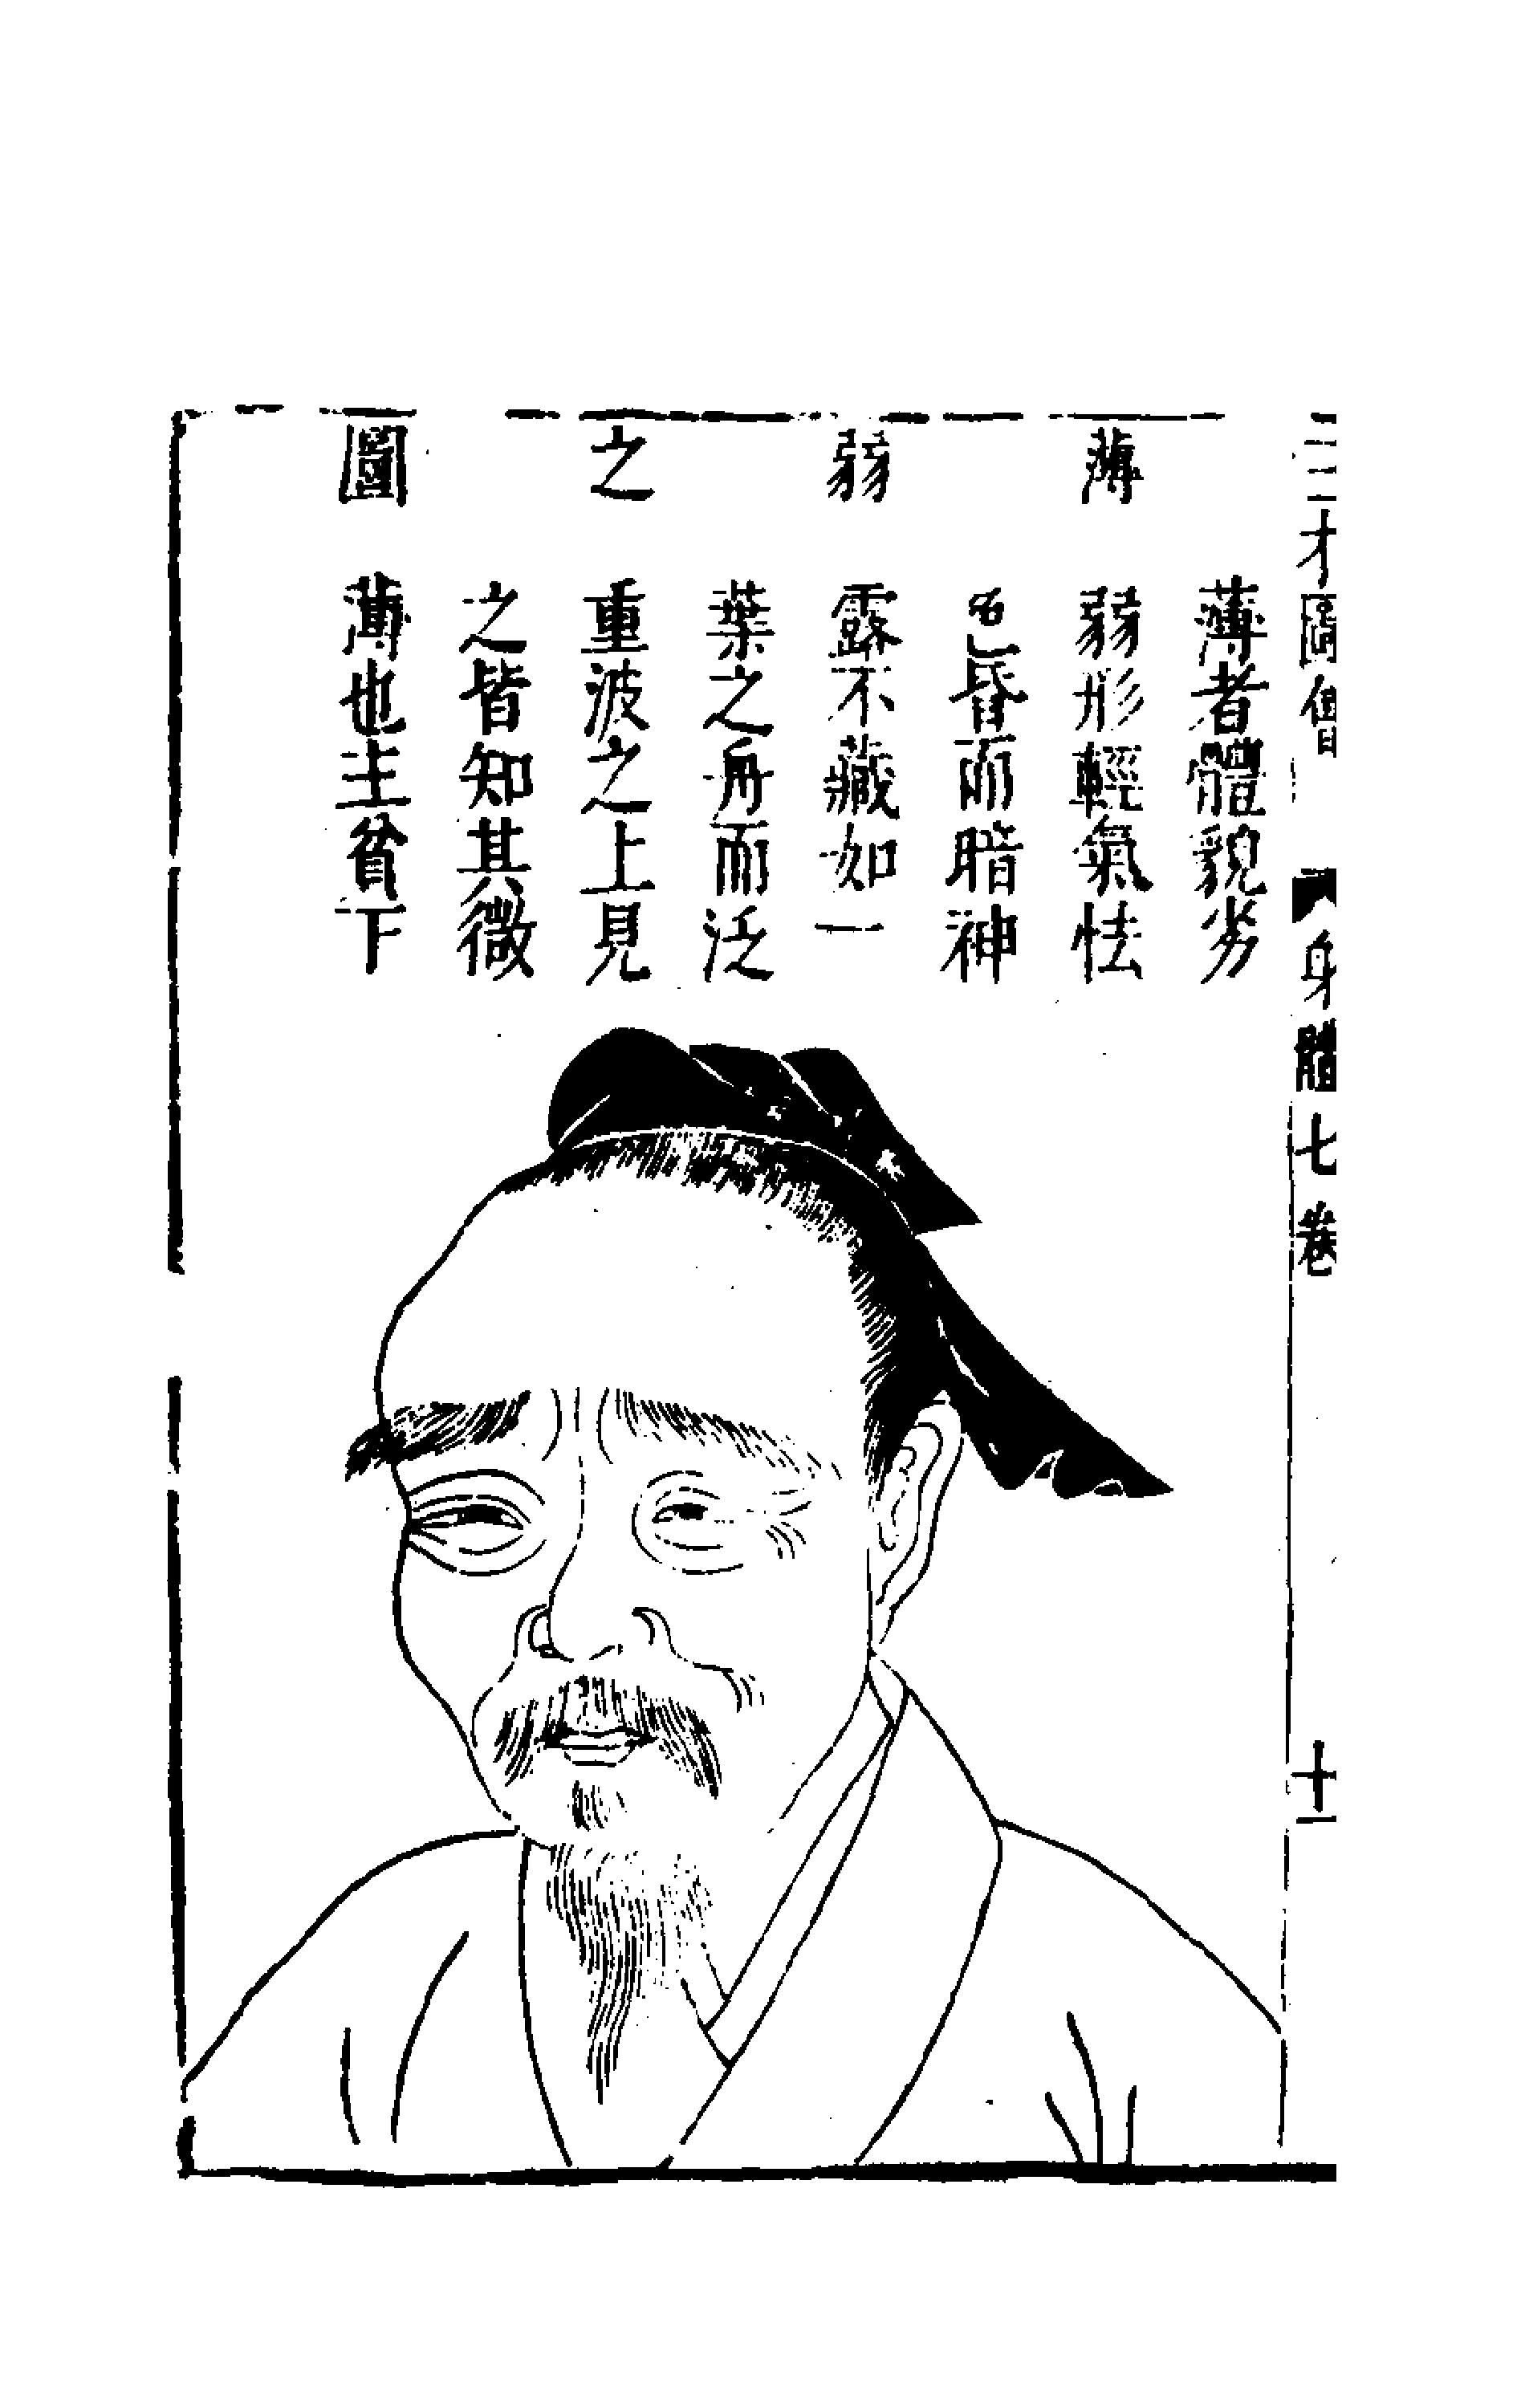 三才圖會 身體七卷 十一
薄弱之圖
薄者體貌劣
弱形輕氣怯
色昏而暗神
露不藏如一
葉之舟而泛
重波之上見
之皆知其微
薄也主貧下